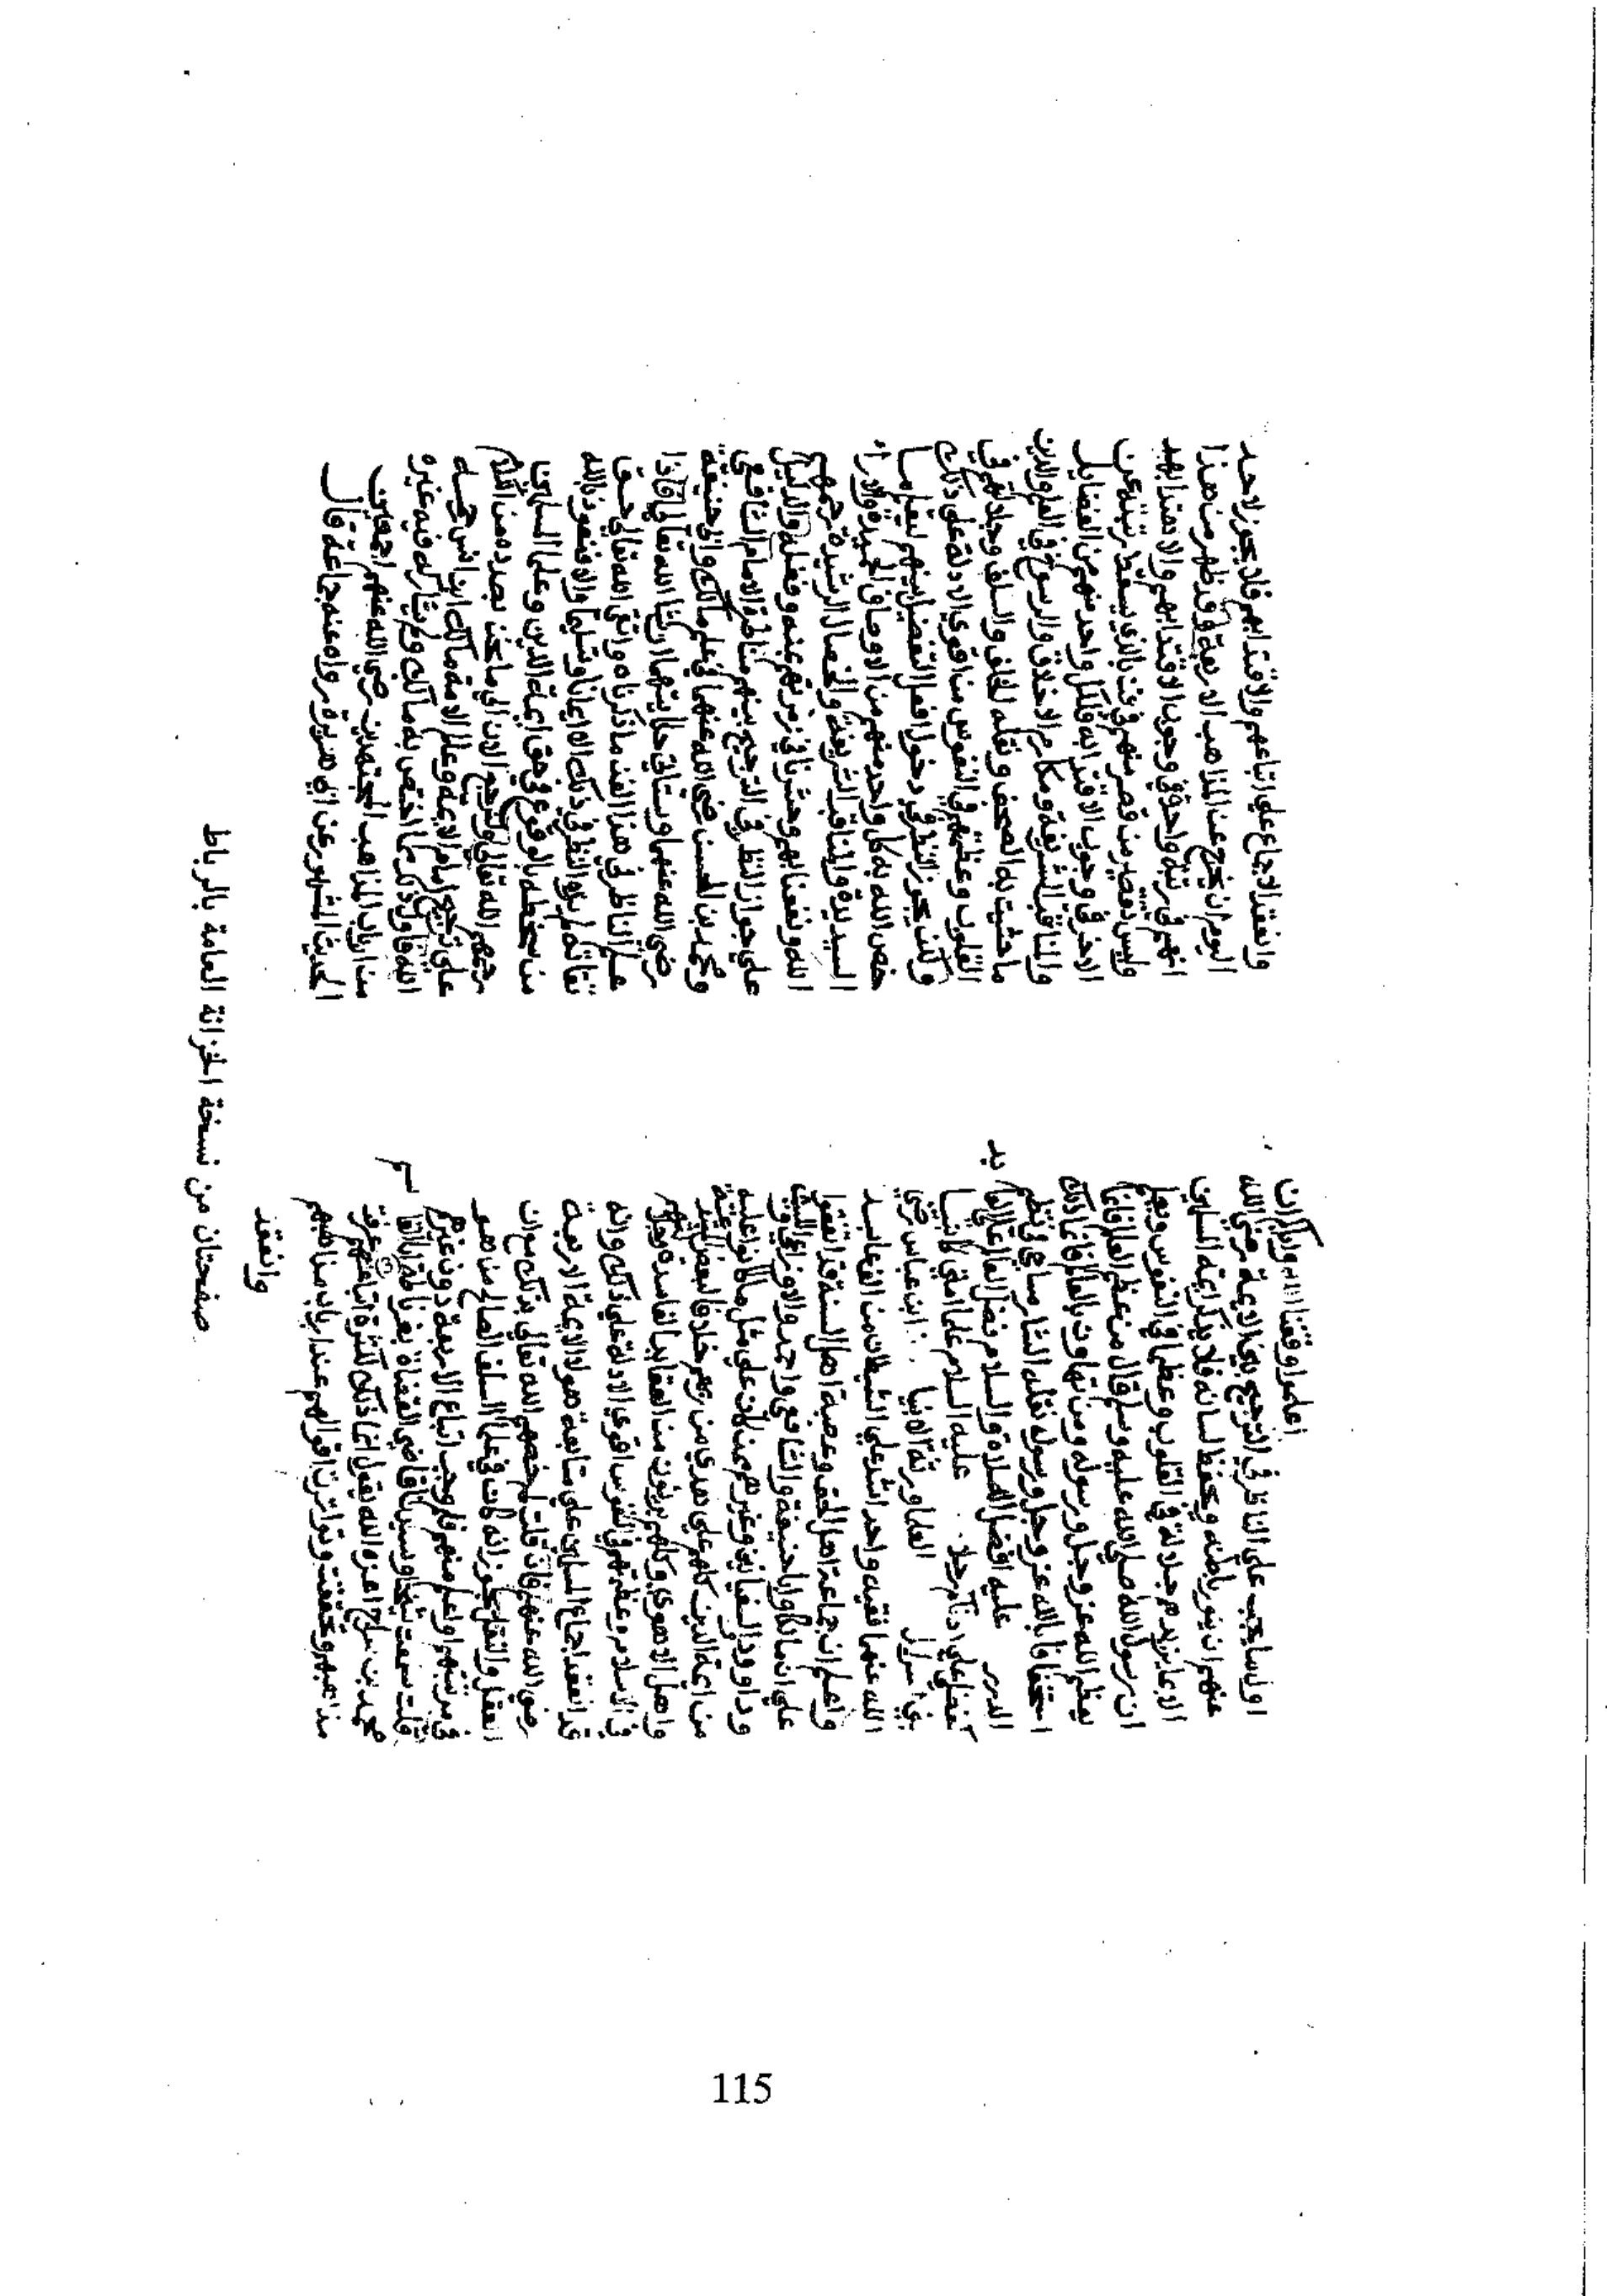 اعلموا وفقنا الله واياكم ان
اول ما يجب على الناظر في الترجيح بين الايمة رضي الله
عنهم ان ينور باطنه ويحفظ لسانه فلا يذكر ايمة المسلمين
الا بما يزيدهم جلالة في القلوب وعظما في النفوس
ان رسول الله صلى الله عليه وسلم قال من عظم العالم فانما
يعظم الله عز وجل ورسوله ومن تهاون بالعالم فانما ذلك
استخفافا بالله عز وجل ورسوله نقله
عليه افضل الصلاة والسلام فضل العالم على العابد
كفضلي على ادناكم رجلا عليه السلام علما امتي كانبيا
بني اسرايل العلما ورثة الانبيا ابن عباس رضي
الله عنهما فقيه واحد اشد على الشيطان من الف عابد
واعلم ان جماعة اهل الحق وعصبة اهل السنة قد اتفقوا
على ان مالكا وابا حنيفة والشافعي واحمد والاوزاعي والليث
وداوود والسفيانين وغيرهم ممن كان على مثل ما كانوا عليه
من ايمة الدين كلهم على هدى من ربهم خلافا لبعض
واهل الاهوى وكلهم بريئون من العقايد الفاسدة
في الاسلام وعظمتهم في النفوس اقوى الادلة على ذلك وانه
قد انعقد اجماع المسلمين على متابعة هولا الايمة الاربعة
رضي الله عنهم فان قلت لم خصهم الله تعالى بذلك مع ان
العقل والنقل يجوز انه كان في علما السلف الصالح من هو
في مرتبتهم او اعلم منهم فلم وجب اتباع الاربعة دون غيرهم
قلت سمعت شيخنا وسيدنا قاضي القضاة بغرناطة ابا القاسم
محمد بن سراج اعزه الله يقول انما ذلك لكثرة اتباعهم
مذاهبهم وتحققت وتواترت اقوالهم عند ارباب مذاهبهم
وانعقد
وانعقد الاجماع على اتباعهم والاقتدا بهم فلا يجوز لاحد
اليوم ان يخرج عن المذاهب الاربعة وقد ظهر من هذا
انهم في رتبة واحدة في وجوب الاقتدا بهم والاهتدا بهديهم
وليس تقصير من قصر منهم في فن بالذي يسقط رتبته عن
الاخر في وجوب الاقتدا به فلكل واحد منهم من الفضايل
والمناقب الشريفة ومكارم الاخلاق والرسوخ في العلم والدين
ما حشيت به الصحف ونقله الخلف والسلف وجلالتهم في
القلوب وعظمتهم في النفوس من اقوى الادلة على ذلك
ولكن يجوز النظر في دخول افعل التفضيل بينهم لتعلم ما
خص الله به كل واحد منهم من الاوصاف الحميدة والاراء
السديدة والمناقب الشريفة والخصال الرشيدة رحمهم
الله ونفعنا بهم وحشرنا في زمرتهم بمنه وفضله والدليل
على جواز النظر في الترجيح بينهم مناظرة الامام الشافعي
ومحمد بن الحسن رضي الله عنهما في علم مالك وابي حنيفة
رضي الله عنهما وستاتي حكايتهما ان شا الله تعالى فاذا
علم الناظر في هذا الفن ما ذكرناه واتقى الله تعالى حق
تقاته لم يزده النظر في ذلك الا ايمانا وتسليما والا فنعوذ بالله
من سخطه بالوقوع في حق ايمة الدين وعلما المسلمين
رحمهم الله تعالى ولنرجع الان الى ما نحن بصدده من الكلام
على ترجيح امام الايمة وعالم الامة مالك ابن انس رحمه
الله فاول ذلك ما اختص به مالك ولم يشاركه فيه غيره
من ارباب المذاهب المجتهدين رضي الله عنهم اجمعين
الحديث المشهور عن ابي هريرة رواه عنه جماعة قال
صفحتان من نسخة الخزانة العامة بالرباط
115